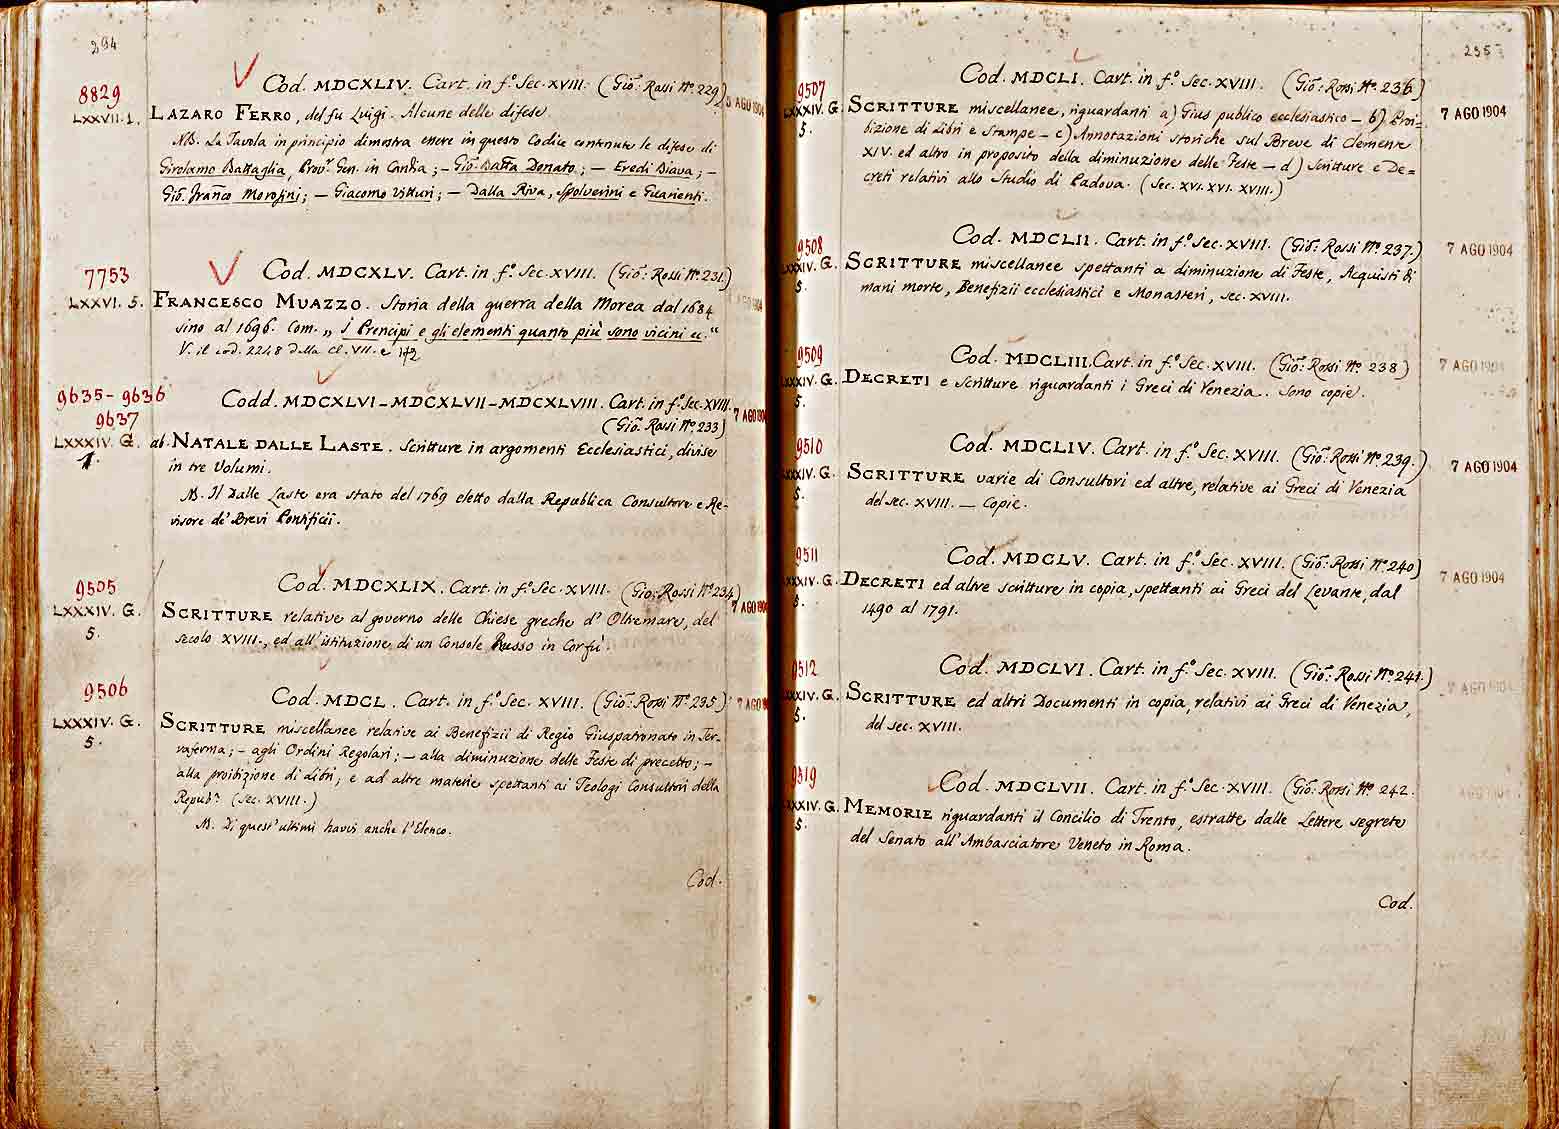 294
8829
LXXVII.1.
Cod. MDCXLIV. Cart. in f.º Sec. XVIII. (Gio: Rossi Nº 229)
5 AGO 1904
LAZARO FERRO, del fu Luigi. Alcune delle difese.
NB. La Tavola in principio dimostra essere in questo Codice contenute le difese di
Girolamo Battaglia, Prov.r Gen. in Candia; – Gio: Batta Donato; – Eredi Biava; –
Gio: Franco Morosini; – Giacomo Vitturi; – Dalla Riva, Spolverini e Guarienti.
7753
LXXVI. 5.
Cod. MDCXLV. Cart. in f.º Sec. XVIII. (Gio: Rossi Nº 231.)
FRANCESCO MUAZZO. Storia della guerra della Morea dal 1684
sino al 1696. Com. „ I Principi e gli elementi quanto più sono vicini ec."
V. il cod. 2248 della cl. VII. e 172
9635 - 9636
9637
LXXXIV. G.
1.
Codd. MDCXLVI – MDCXLVII – MDCXLVIII. Cart. in f.º Sec. XVIII.
(Gio: Rossi Nº 233)
7 AGO 1904
ab. NATALE DALLE LASTE. Scritture in argomenti Ecclesiastici, divise
in tre Volumi.
NB. Il Dalle Laste era stato del 1769 eletto dalla Republica Consultore e Re-
visore de' Brevi Pontificii.
9505
LXXXIV. G.
5.
Cod. MDCXLIX. Cart. in f.º Sec. XVIII. (Gio: Rossi Nº 234)
7 AGO 1904
SCRITTURE relative al governo delle Chiese greche d' Oltremare, del
secolo XVIII., ed all' istituzione di un Console Russo in Corfù.
9506
LXXXIV. G.
5.
Cod. MDCL. Cart. in f.º Sec. XVIII. (Gio: Rossi Nº 235)
7 AGO
SCRITTURE miscellanee relative ai Benefizii di Regio Giuspatronato in Ter-
raferma; – agli Ordini Regolari; – alla diminuzione delle Feste di precetto; –
alla proibizione di Libri; e ad altre materie spettanti ai Teologi Consultori della
Repub.ª (Sec. XVIII.)
NB. Di quest' ultimi havvi anche l'Elenco.
Cod.
235
9507
LXXXIV. G.
5.
Cod. MDCLI. Cart. in f.º Sec. XVIII. (Gio: Rossi Nº 236)
7 AGO 1904
SCRITTURE miscellanee, riguardanti a) Gius publico ecclesiastico – b) Proi=
bizione di Libri e Stampe – c) Annotazioni storiche sul Breve di Clemente
XIV. ed altro in proposito della diminuzione delle Feste – d) Scritture e De=
creti relativi allo Studio di Padova. (Sec. XVI. XVI. XVIII.)
9508
LXXXIV. G.
5.
Cod. MDCLII. Cart. in f.º Sec. XVIII. (Gio: Rossi Nº 237.)
7 AGO 1904
SCRITTURE miscellanee spettanti a diminuzione di Feste, Acquisti di
mani morte, Benefizii ecclesiastici e Monasteri, sec. XVIII.
9509
LXXXIV. G.
5.
Cod. MDCLIII. Cart. in f.º Sec. XVIII. (Gio: Rossi Nº 238)
7 AGO 1904
DECRETI e scritture riguardanti i Greci di Venezia. Sono copie.
9510
LXXXIV. G.
5.
Cod. MDCLIV. Cart. in f.º Sec. XVIII. (Gio: Rossi Nº 239.)
7 AGO 1904
SCRITTURE varie di Consultori ed altre, relative ai Greci di Venezia
del sec. XVIII. – Copie.
9511
LXXXIV. G.
5.
Cod. MDCLV. Cart. in f.º Sec. XVIII. (Gio: Rossi Nº 240)
7 AGO 1904
DECRETI ed altre scritture in copia, spettanti ai Greci del Levante, dal
1490 al 1791.
9512
LXXXIV. G.
5.
Cod. MDCLVI. Cart. in f.º Sec. XVIII. (Gio: Rossi Nº 241.)
7 AGO 1904
SCRITTURE ed altri Documenti in copia, relativi ai Greci di Venezia,
del sec. XVIII.
9519
LXXXIV. G.
5.
Cod. MDCLVII. Cart. in f.º Sec. XVIII. (Gio: Rossi Nº 242.
MEMORIE riguardanti il Concilio di Trento, estratte dalle Lettere segrete
del Senato all'Ambasciatore Veneto in Roma.
Cod.